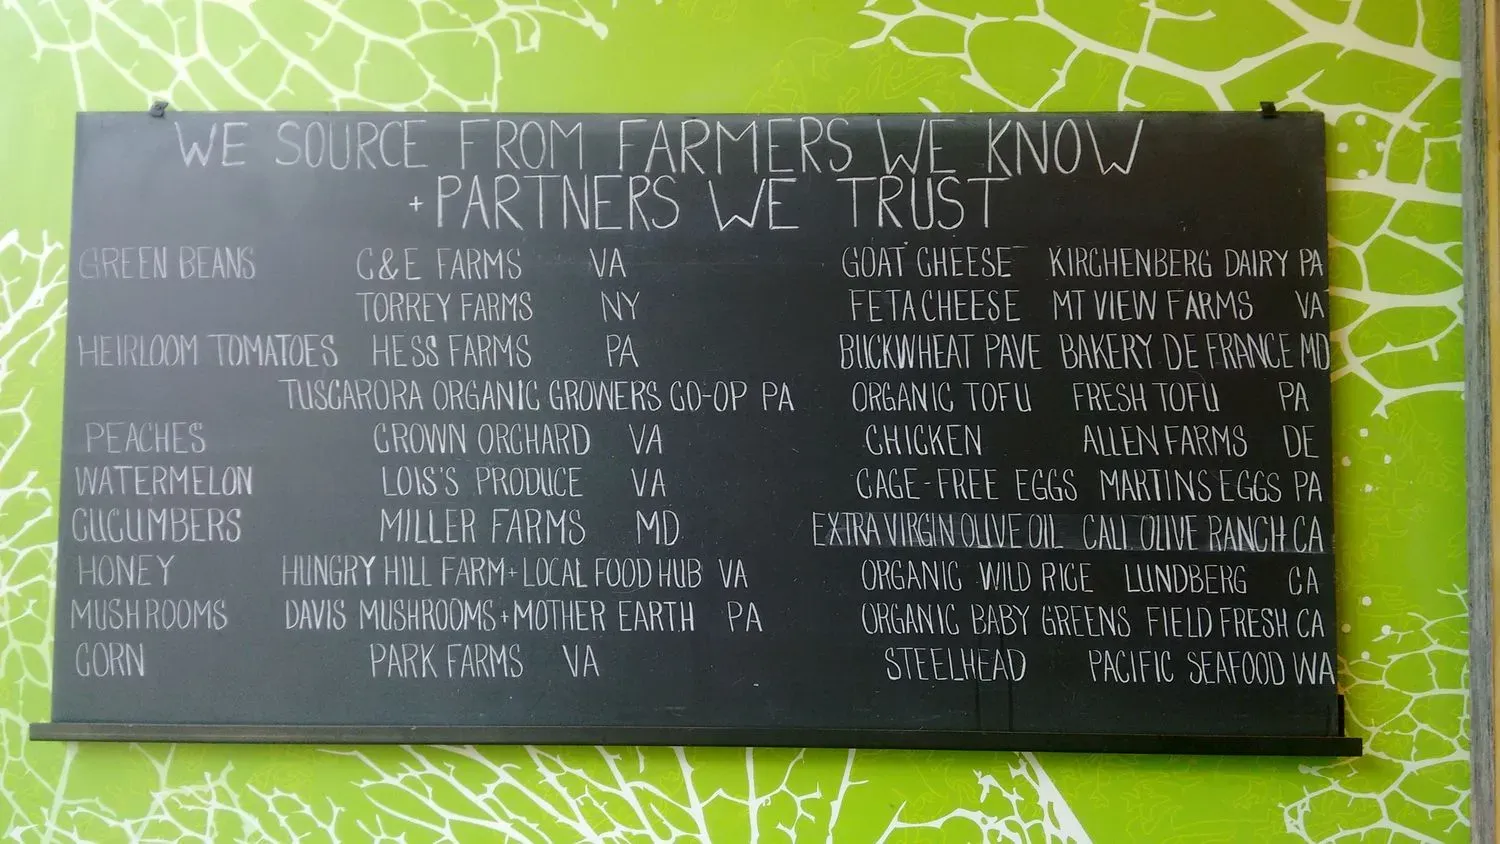 WE SOURCE FROM FARMERS WE KNOW
+ PARTNERS WE TRUST
GREEN BEANS C&E FARMS VA
TORREY FARMS NY
HEIRLOOM TOMATOES HESS FARMS PA
TUSCARORA ORGANIC GROWERS CO-OP PA
PEACHES CROWN ORCHARD VA
WATERMELON LOIS'S PRODUCE VA
CUCUMBERS MILLER FARMS MD
HONEY HUNGRY HILL FARM + LOCAL FOOD HUB VA
MUSHROOMS DAVIS MUSHROOMS + MOTHER EARTH PA
CORN PARK FARMS VA
GOAT CHEESE KIRCHENBERG DAIRY PA
FETA CHEESE MT VIEW FARMS VA
BUCKWHEAT PAVE BAKERY DE FRANCE MD
ORGANIC TOFU FRESH TOFU PA
CHICKEN ALLEN FARMS DE
CAGE-FREE EGGS MARTINS EGGS PA
EXTRA VIRGIN OLIVE OIL CALI OLIVE RANCH CA
ORGANIC WILD RICE LUNDBERG CA
ORGANIC BABY GREENS FIELD FRESH CA
STEELHEAD PACIFIC SEAFOOD WA